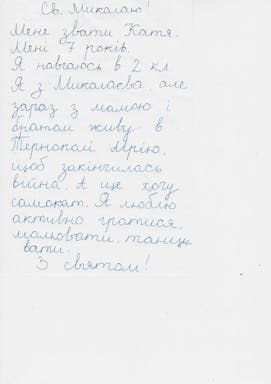 Св. Миколаю!
Мене звати Катя.
Мені 7 років.
Я навчаюсь в 2 кл
Я з Миколаєва, але
зараз з мамою і
братом живу в
Тернополі Мрію,
щоб закінчилась
війна. А ще хочу
самокат. Я люблю
активно гратися,
малювати, танцю
вати.
З святом!